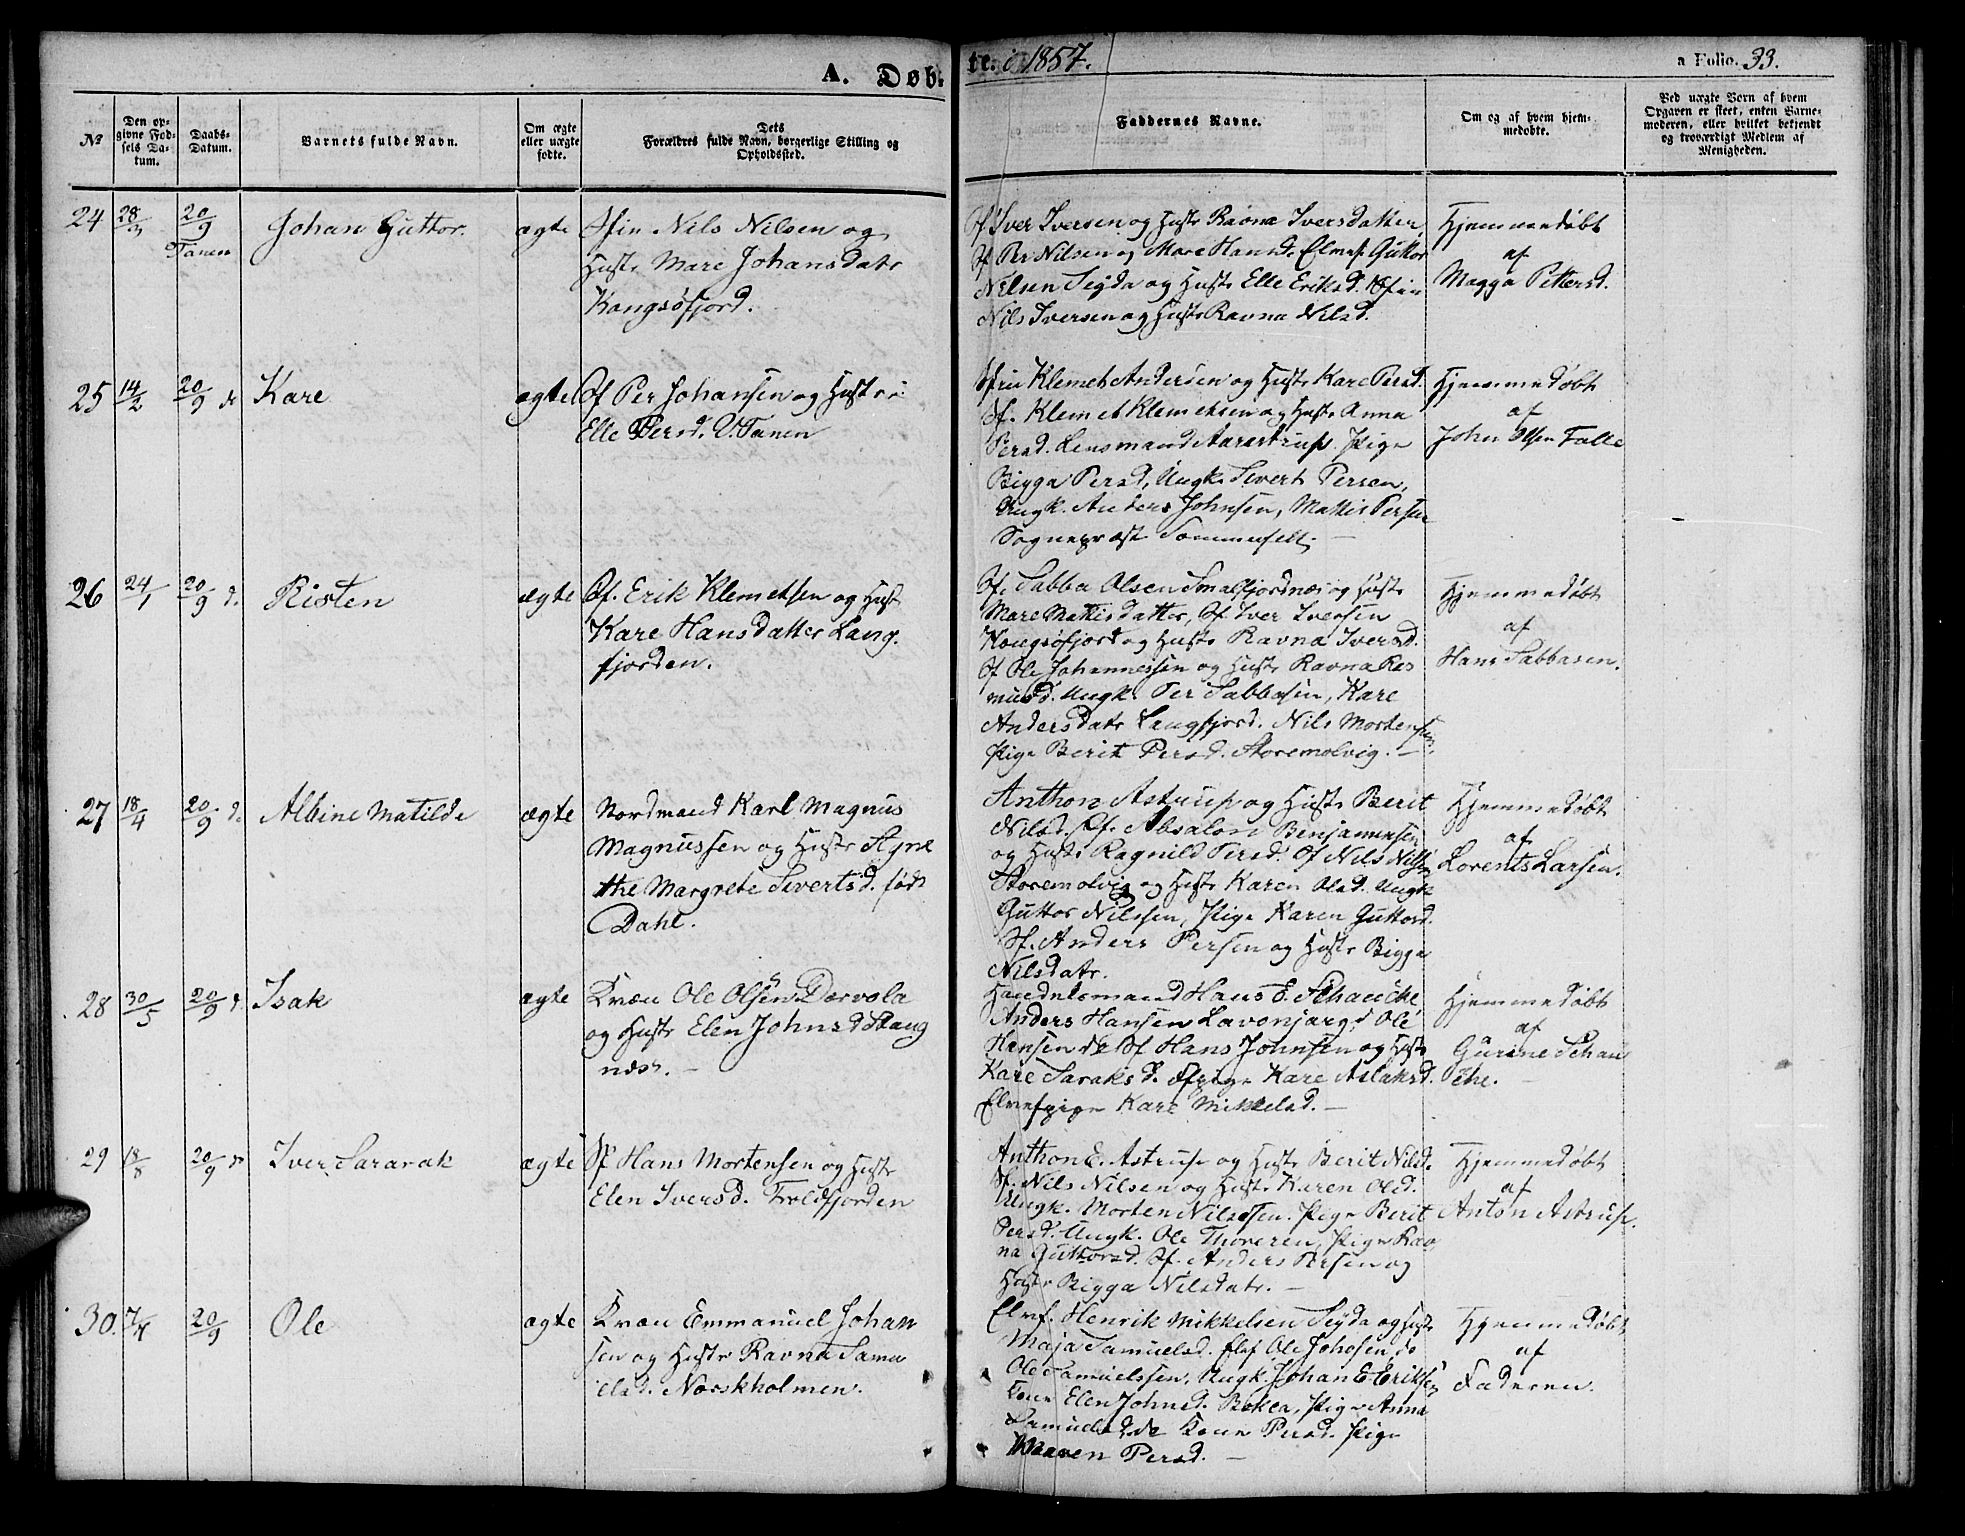 A. Døb-
te. i 1857.
a Folio. 33.
№
Den op-
givne Fød-
sels Da-
tum.
Daabs-
Datum.
Barnets fulde Navn.
Om ægte
eller uægte
fødte.
Dets
Forældres fulde Navn, borgerlige Stilling og
Opholdssted.
Faddernes Navne.
Om og af hvem hjem-
medøbte.
Ved uægte Børn af hvem
Opgaven er skeet, enten Barne-
moderen, eller hvilket bekjendt
og troværdigt Medlem af
Menigheden.
24 28/3 20/9 Johan Guttor. ægte Sfin Nils Nilsen og
Tanen
Hustr Mare Johansdatr
Kongsøfjord.
Sf Iver Iversen og Hustr Ravna Iversdatter,
Sf Per Nilsen og Mare Hansd. Guttor
Nilsen Seyda og Hustr Elle Eriksd. Sfin
Nils Iversen og Hustr Ravna Nilsd.
Hjemmedøbt
af
Magga Pettersd.
25 14/2 20/9 d Kare ægte Sf Per Johansen og Hustr
Elle Persd. V. Tanen
Sfin Klemet Andersen og Hustr Kare Persd.
Sf. Klemet Klemetsen og Hustr Anna
Persd. Lensmand Aarestrup. Pige
Bigga Persd, Ungk. Sivert Persen,
Ungk. Anders Johnsen, Mattis Persen
Sognepræst Sommerfelt. —
Hjemmedøbt
af
John Olsen Falle
26 24/1 20/9 d. Risten ægte Sf. Erik Klemetsen og Hustr
Kare Hansdatter Lang-
fjorden.
Sf. Sabba Olsen Smalfjordnæs og Hustr
Mare Mattisdatter, Sf Iver Iversen
Kongsøfjord og Hustr Ravna Iversd.
Sf Ole Johannessen og Hustr Ravna Ras
musd. Ungk. Per Sabbasen, Kare
Andersdatr Langfjord. Nils Mortensen,
Pige Berit Persd. Storemolvig. —
Hjemmedøbt
af
Hans Sabbasen.
27 18/4 20/9 d. Albine Matilde ægte Nordmand Karl Magnus
Magnussen og Hustr Agne
the Margrete Sivertsd. født
Dahl.
Anthon Astrup og Hustr Berit
Nilsd. Sf. Absalon Benjaminsen
og Hustr Ragnild Persd. Sf Nils Nilsen
Storemolvig og Hustr Karen Olsd. Ungk
Guttor Nilssen, Pige Karen Guttorsd.
Sf. Anders Persen og Hustr Bigga
Nilsdatr.
Hjemmedøbt
af
Lorents Larsen.
28 30/5 20/9 d. Isak ægte Kvæn Ole Olsen Dervola
og Hustr Elen Johnsd Stang
næs. —
Handelsmand Hans E. Schancke
Anders Hansen Lavonjarg, Ole
Hansen do Sf Hans Johnsen og Hustr
Kare Saraksd. Sfpige Kare Aslaksd.
Elvefpige Kare Mikkelsd. —
Hjemmedøbt
af
Gurine Schan
che. —
29 18/8 20/9 d Iver Sararak ægte Sf Hans Mortensen og Hustr
Elen Iversd. Troldfjorden
Anthon E. Astrup og Hustr Berit Nilsd.
Sf. Nils Nilsen og Hustr Karen Olsd.
Ungk. Morten Nilssen. Pige Berit
Persd. Ungk. Ole Thoresen, Pige Rav
na Guttorsd. Sf. Anders Persen og
Hustr Bigga Nilsdatr. —
Hjemmedøbt
af
Anton Astrup.
30. 20/9 Ole ægte Kvæn Emmanuel Johan
sen og Hustr Ravna Samu
elsd. Norskholmen.
Elvf. Henrik Mikkelsen Seyda og Hustr
Maja Samuelsd. Elvf Ole Johnsen do
Ole Samuelssen, Ungk. Johan E Eriksen
Kone Elen Johnsd. Pige Anna
Samuelsd, do Kone Persd. Pige
Maren Persd. —
Hjemmedøbt
af
Faderen.